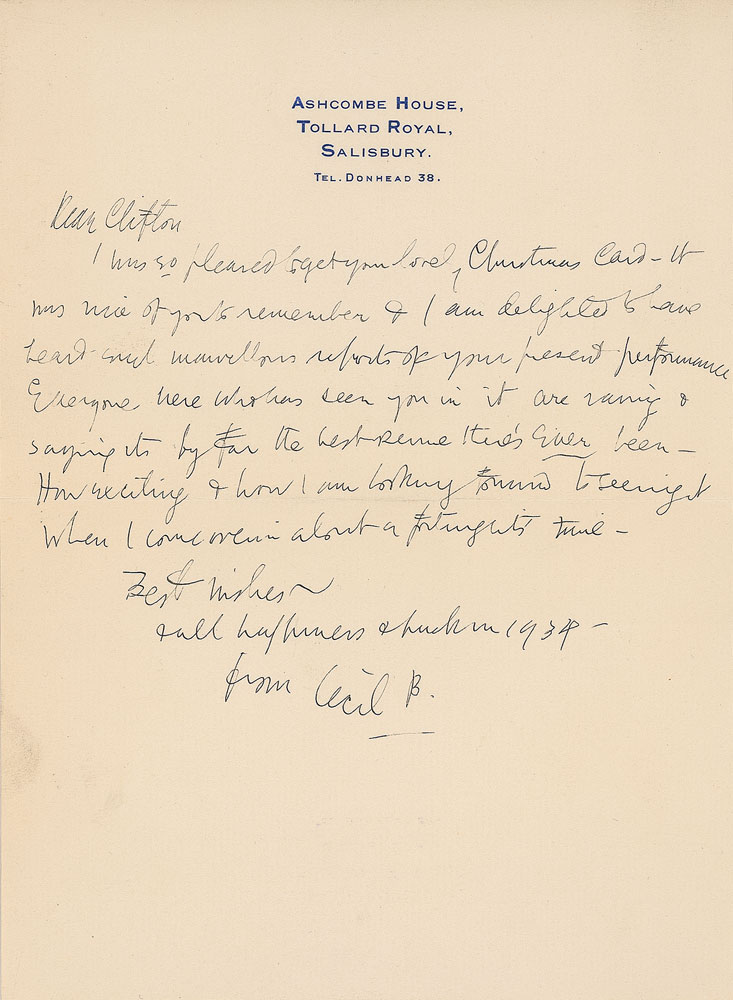 ASHCOMBE HOUSE,
TOLLARD ROYAL,
SALISBURY.
TEL. DONHEAD 38.
Dear Clifton
I was so pleased to get your lovely Christmas Card – It
was nice of you to remember & I am delighted to have
heard such marvellous reports of your present performance
Everyone here who has seen you in it are raving &
saying its by far the best revue there's ever been –
How exciting & how I am looking forward to seeing it
when I come over in about a fortnight's time –
Best wishes
& all happiness & luck in 1934 –
from Cecil B.